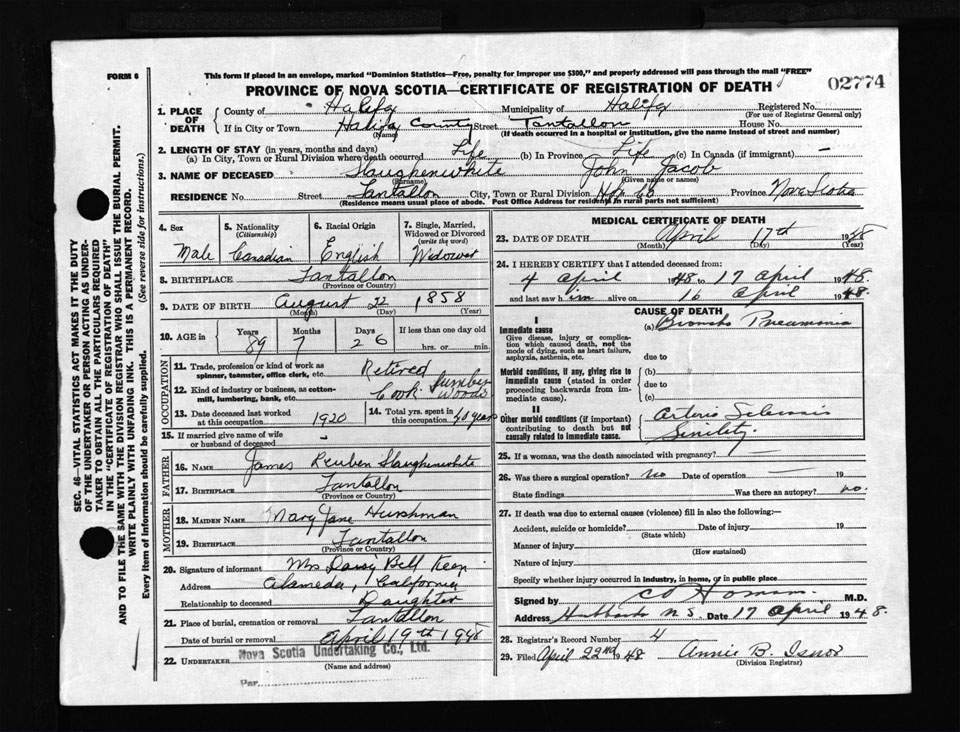 FORM 6
This form if placed in an envelope, marked "Dominion Statistics—Free, penalty for improper use $300," and properly addressed will pass through the mail "FREE"
PROVINCE OF NOVA SCOTIA—CERTIFICATE OF REGISTRATION OF DEATH
02774
1. PLACE OF DEATH
County of Halifax Municipality of Halifax Registered No.
(For use of Registrar General only)
If in City or Town Halifax County Street Tantallon House No.
(Name) (If death occurred in a hospital or institution, give the name instead of street and number)
2. LENGTH OF STAY (in years, months and days)
(a) In City, Town or Rural Division where death occurred Life (b) In Province Life (c) In Canada (if immigrant) —
3. NAME OF DECEASED Slaughenwhite John Jacob
(Surname) (Given name or names)
RESIDENCE No. Street Tantallon City, Town or Rural Division Hfx Co Province Nova Scotia
(Residence means usual place of abode. Post Office Address for residents in rural parts not sufficient)
4. Sex Male
5. Nationality (Citizenship) Canadian
6. Racial Origin English
7. Single, Married, Widowed or Divorced (write the word) Widower
8. BIRTHPLACE Tantallon
(Province or Country)
9. DATE OF BIRTH August 22 1858
(Month) (Day) (Year)
10. AGE Years 89 Months 7 Days 26 If less than one day old
hrs. or min.
OCCUPATION
11. Trade, profession or kind of work as spinner, teamster, office clerk, etc. Retired
12. Kind of industry or business, as cotton-mill, lumbering, bank, etc. Cook Lumber Woods
13. Date deceased last worked at this occupation 1920
14. Total yrs. spent in this occupation 40 years
15. If married give name of wife or husband of deceased –
FATHER
16. NAME James Reuben Slaughenwhite
17. BIRTHPLACE Tantallon
(Province or Country)
MOTHER
18. MAIDEN NAME Mary Jane Hurshman
19. BIRTHPLACE Tantallon
(Province or Country)
20. Signature of informant Mrs Daisy Bell Keen
Address Alameda, California
Relationship to deceased Daughter
21. Place of burial, cremation or removal Tantallon
Date of burial or removal April 19th 1948
22. UNDERTAKER Nova Scotia Undertaking Co., Ltd.
(Name and address)
Per
MEDICAL CERTIFICATE OF DEATH
23. DATE OF DEATH April 17th 1948
(Month) (Day) (Year)
24. I HEREBY CERTIFY that I attended deceased from:
4 April 1948 to 17 April 1948
and last saw him alive on 16 April 1948.
CAUSE OF DEATH
I
Immediate cause
Give disease, injury or complication which caused death, not the mode of dying, such as heart failure, asphyxia, asthenia, etc.
(a) Broncho Pneumonia
due to
Morbid conditions, if any, giving rise to immediate cause (stated in order proceeding backwards from immediate cause).
(b)
due to
(c)
II
Other morbid conditions (if important) contributing to death but not causally related to immediate cause.
Arterio Sclerosis
Senility
25. If a woman, was the death associated with pregnancy? —
26. Was there a surgical operation? no Date of operation — 19
State findings Was there an autopsy? no.
27. If death was due to external causes (violence) fill in also the following:—
Accident, suicide or homicide? Date of injury 19
(State which)
Manner of injury
(How sustained)
Nature of injury
Specify whether injury occurred in industry, in home, or in public place
Signed by C O Homans M.D.
Address N.S. Date 17 April 1948.
28. Registrar's Record Number 4
29. Filed April 22nd 1948 Annie B. Isnor
(Division Registrar)
SEC. 46—VITAL STATISTICS ACT MAKES IT THE DUTY
OF THE UNDERTAKER OR PERSON ACTING AS UNDER-
TAKER TO OBTAIN ALL THE PARTICULARS REQUIRED
IN THE "CERTIFICATE OF REGISTRATION OF DEATH"
AND TO FILE THE SAME WITH THE DIVISION REGISTRAR WHO SHALL ISSUE THE BURIAL PERMIT.
WRITE PLAINLY WITH UNFADING INK. THIS IS A PERMANENT RECORD.
Every item of Information should be carefully supplied. (See reverse side for instructions.)